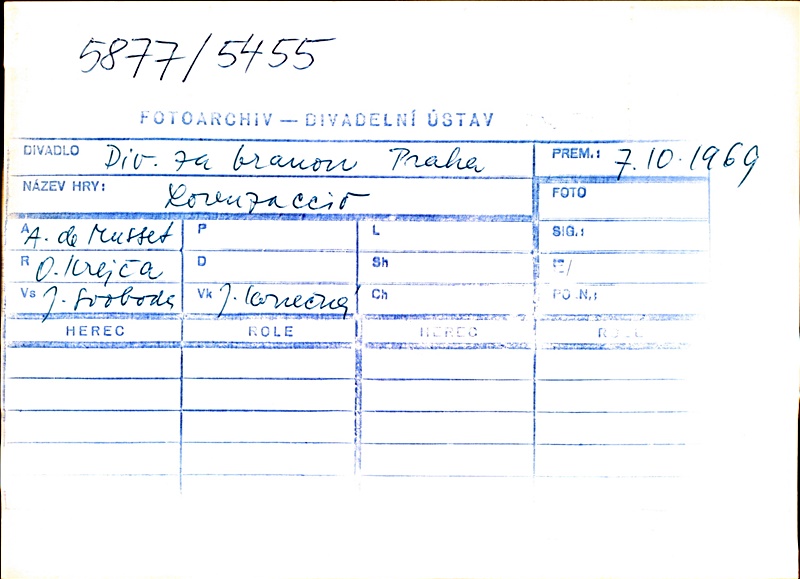 5877/5455
FOTOARCHIV — DIVADELNÍ ÚSTAV
DIVADLO Div. za branou Praha PREM.: 7.10.1969
NÁZEV HRY: Lorenzaccio FOTO
A A. de Musset P L SIG.:
R O. Krejča D Sh
Vs J. Svoboda Vk J. Konečná Ch PO.N.:
HEREC ROLE HEREC ROLE